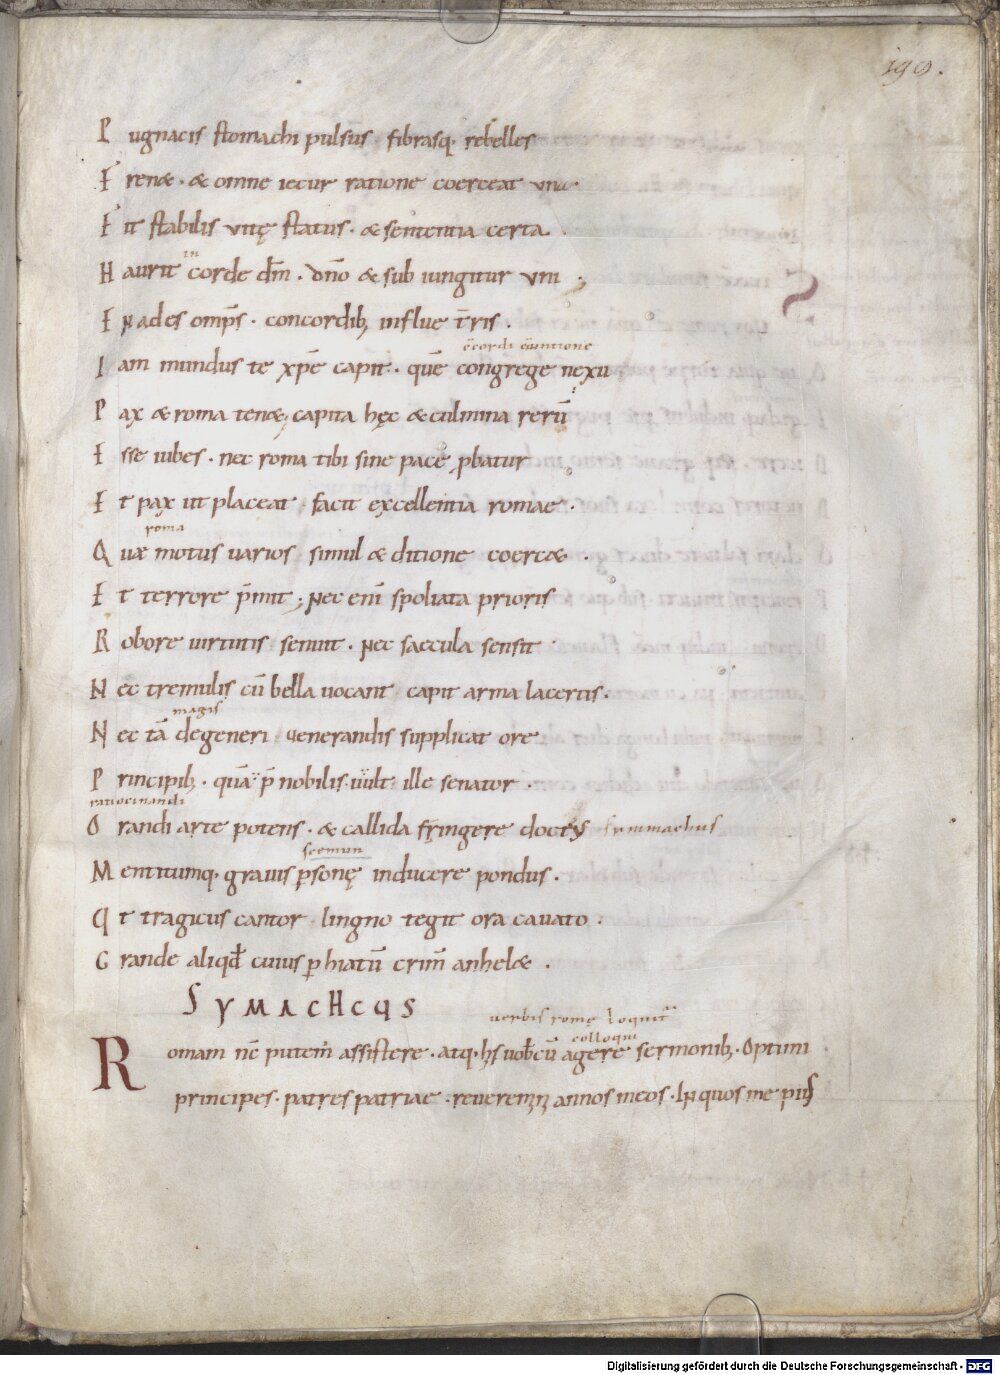 190.
P ugnacis stomachi pulsus · fibrasq· rebelles
F renæ · & omne iecur ratione coerceat una·
F it stabilis vitę status · & sententia certa
in
H aurit corde dm̄ · dn̄o & sub iungitur vni ;
E n ades omp̄s · concordib; influe t̄ris ·
c̄cordi c̄uintione
I am mundus te xp̄e capit · quē congrege nexu
P ax & roma tenæ; capita hęc & culmina rerū
E sse iubes · nec roma tibi sine pace ꝓbatur
E t pax ut placeat · facit excellentia romae ·
roma
Q uæ motus uarios simul & ditione coercæ ·
E t terrore p̄mit ; Nec eni͞m spoliata prioris
R obore uirtutis senuit · Nec saecula sensit ·
N ec tremulis cū bella uocant capit arma lacertis ·
magis
N ec tā degeneri uenerandis supplicat ore
P rincipib; · quā p̄nobilis uult ille senator ·
ratiocinandi
O randi arte potens · & callida fringere doctus symmachus
M entitumq· grauis ꝑsonę inducere pondus ·
U t tragicus cantor lingno tegit ora cauato ·
G rande aliqd̄ cuius ꝑ hiatū crim̄ anhelæ ·
SYMACHCUS
uerbis romę loquit᷑
colloqui
R omam nc̄ putem̄ assistere · atq· hįs uob̄cū agere sermonib; · Optimi
principes · patres patriae · reueremini annos meos · In quos me pius